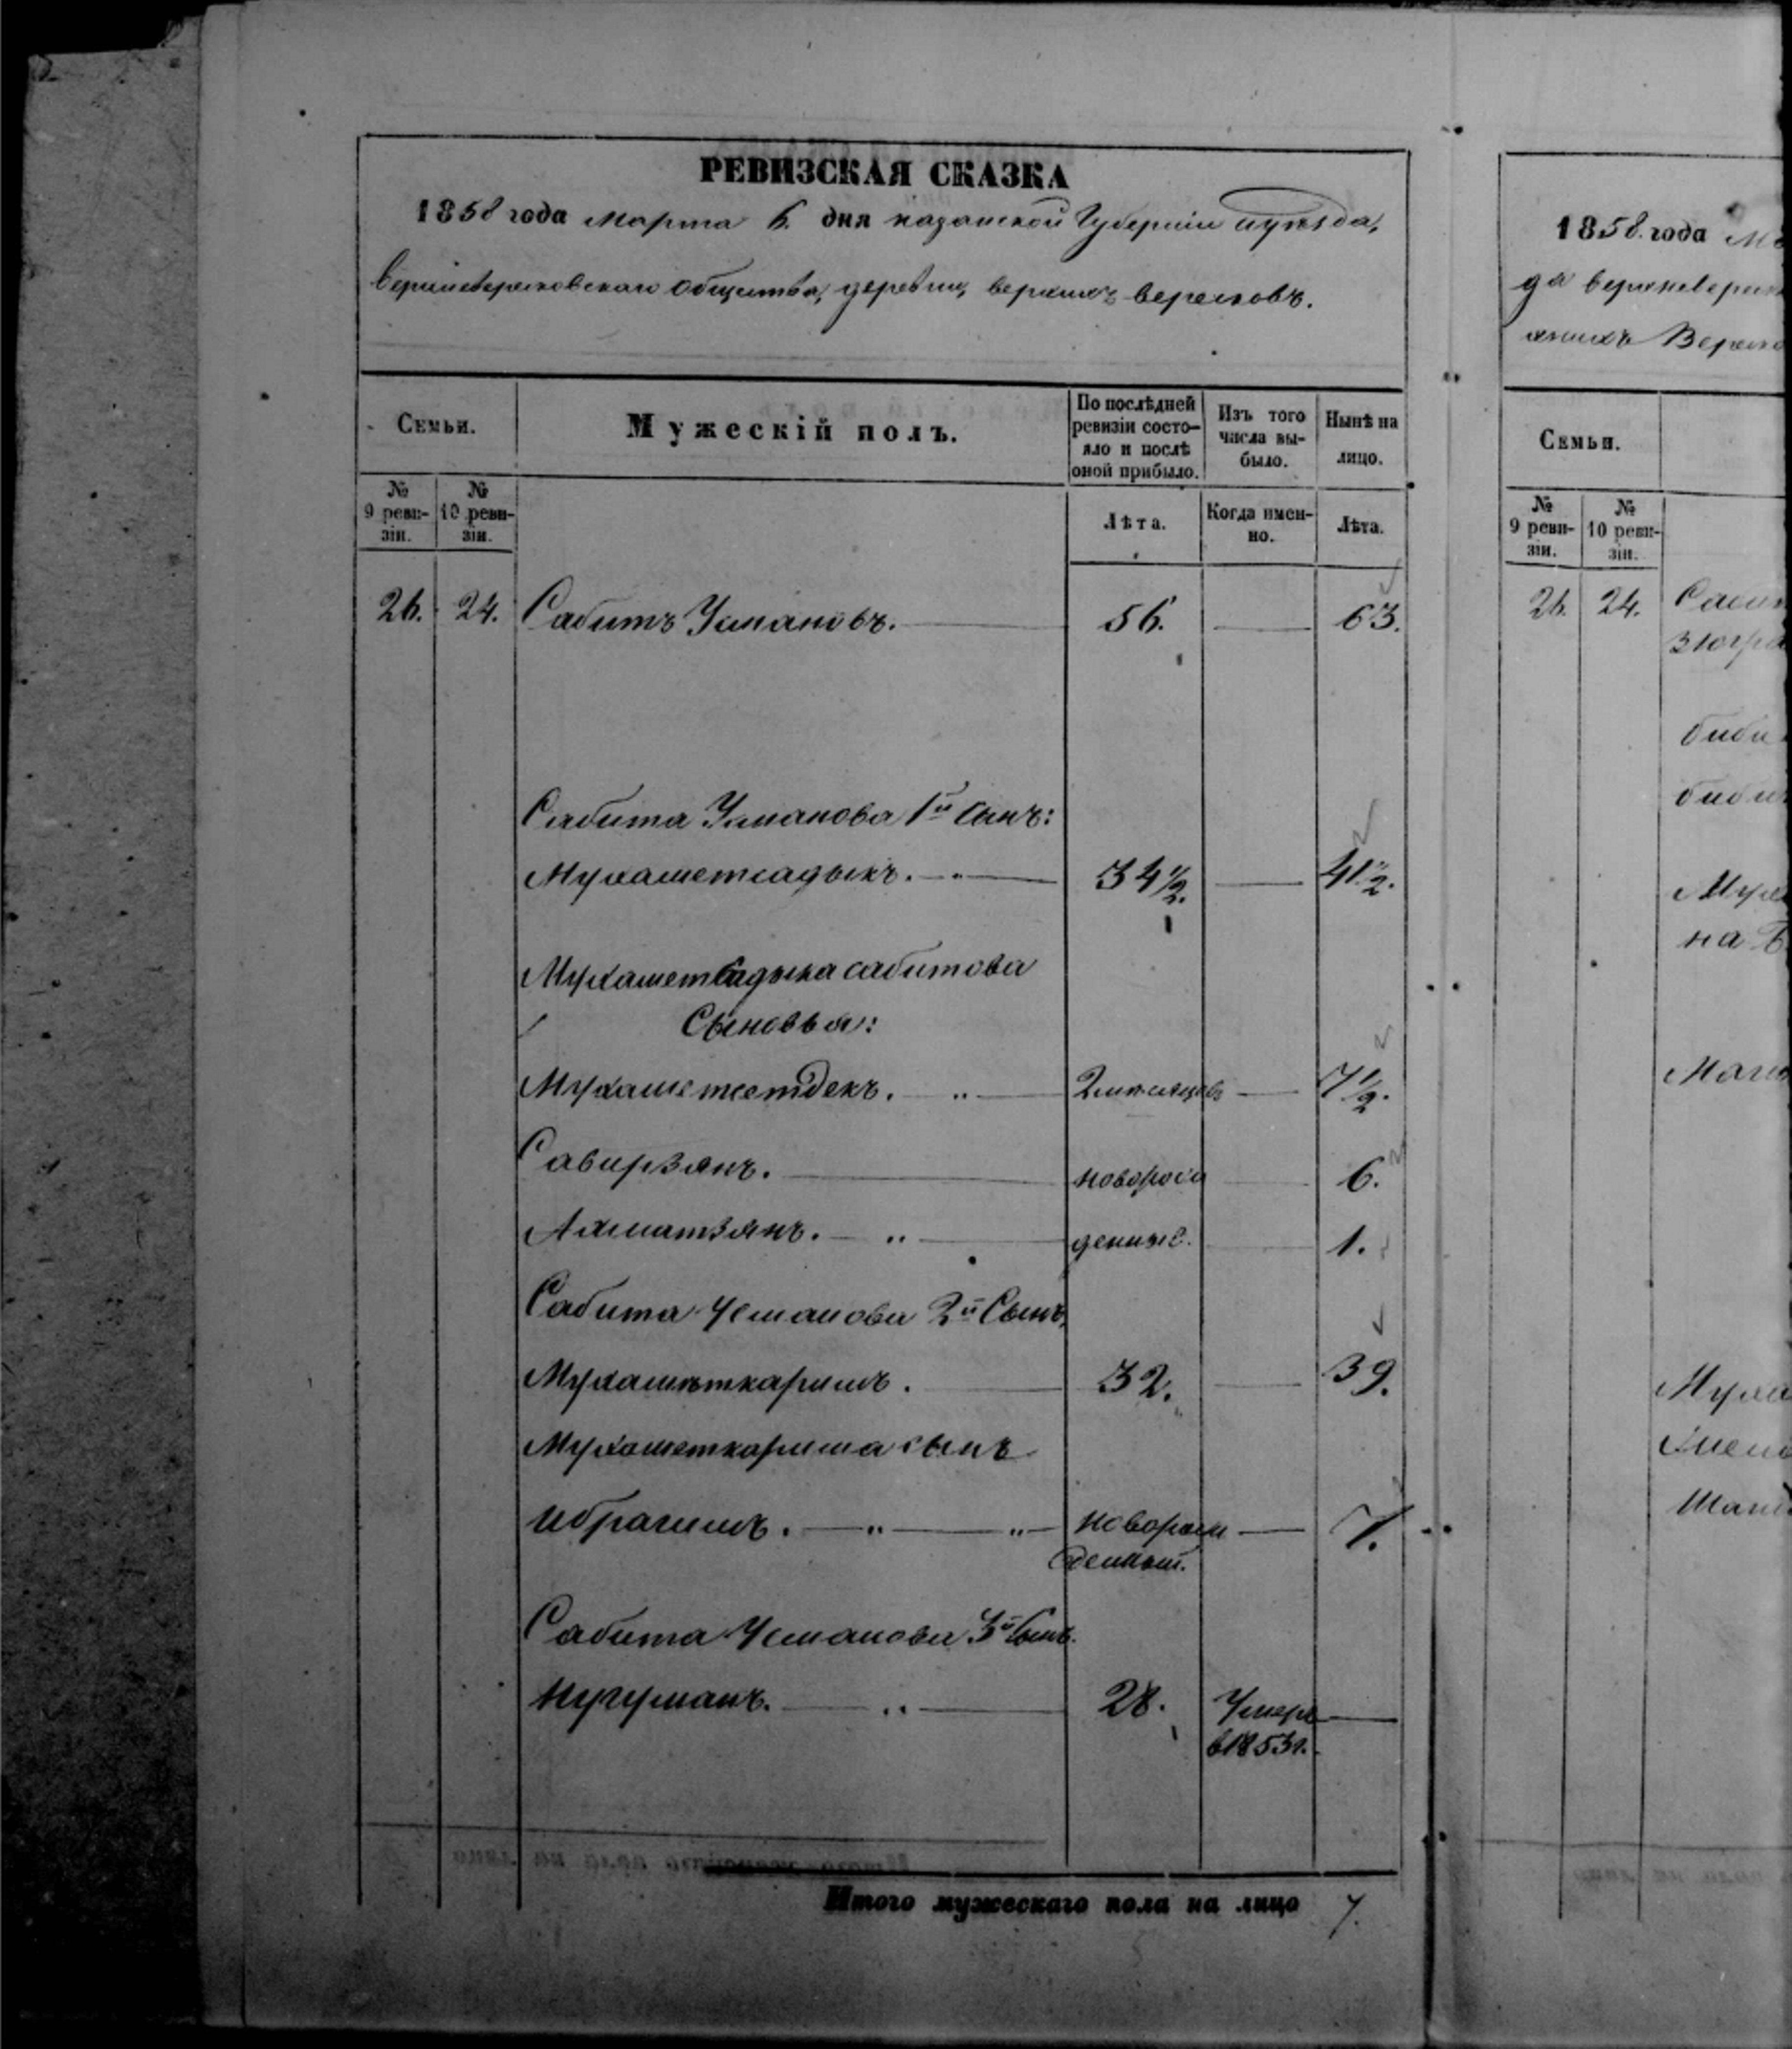 РЕВИЗСКАЯ СКАЗКА
1858 года Марта 6. дня казанской Губернии и уѣзда,
верхневересковскаго общества, деревни, верхнихъ вересковъ.
Семьи.
Мужескій полъ.
По послѣдней ревизіи состояло и послѣ оной прибыло.
Изъ того числа выбыло.
Нынѣ на лицо.
№ 9 ревизіи.
№ 10 ревизіи.
Лѣта.
Когда именно.
Лѣта.
26. 24. Сабитъ Усмановъ. 56. 63.
Сабита Усманова 1й сынъ:
Мухаметсадыкъ. 34 1/2. 41 1/2.
Мухаметсадыка сабитова
Сыновья:
Мухаме 2 мѣсяцовъ 7 1/2.
Сабирзянъ. новорож 6.
Ахматзянъ. денные. 1.
Сабита Усманова 2й Сынъ,
Мухаметкаримъ. 32. 39.
Мухаметкарима сынъ
ибрагимъ. новорож 7.
денный.
Сабита Усманова 3й Сынъ.
Нугуманъ. 28. Умеръ
в 1853 г.
Итого мужескаго пола на лицо 7.
1858. года
да
хнихъ
Семьи.
№ 9 ревизіи.
№ 10 ревизіи.
26. 24.
биби
на